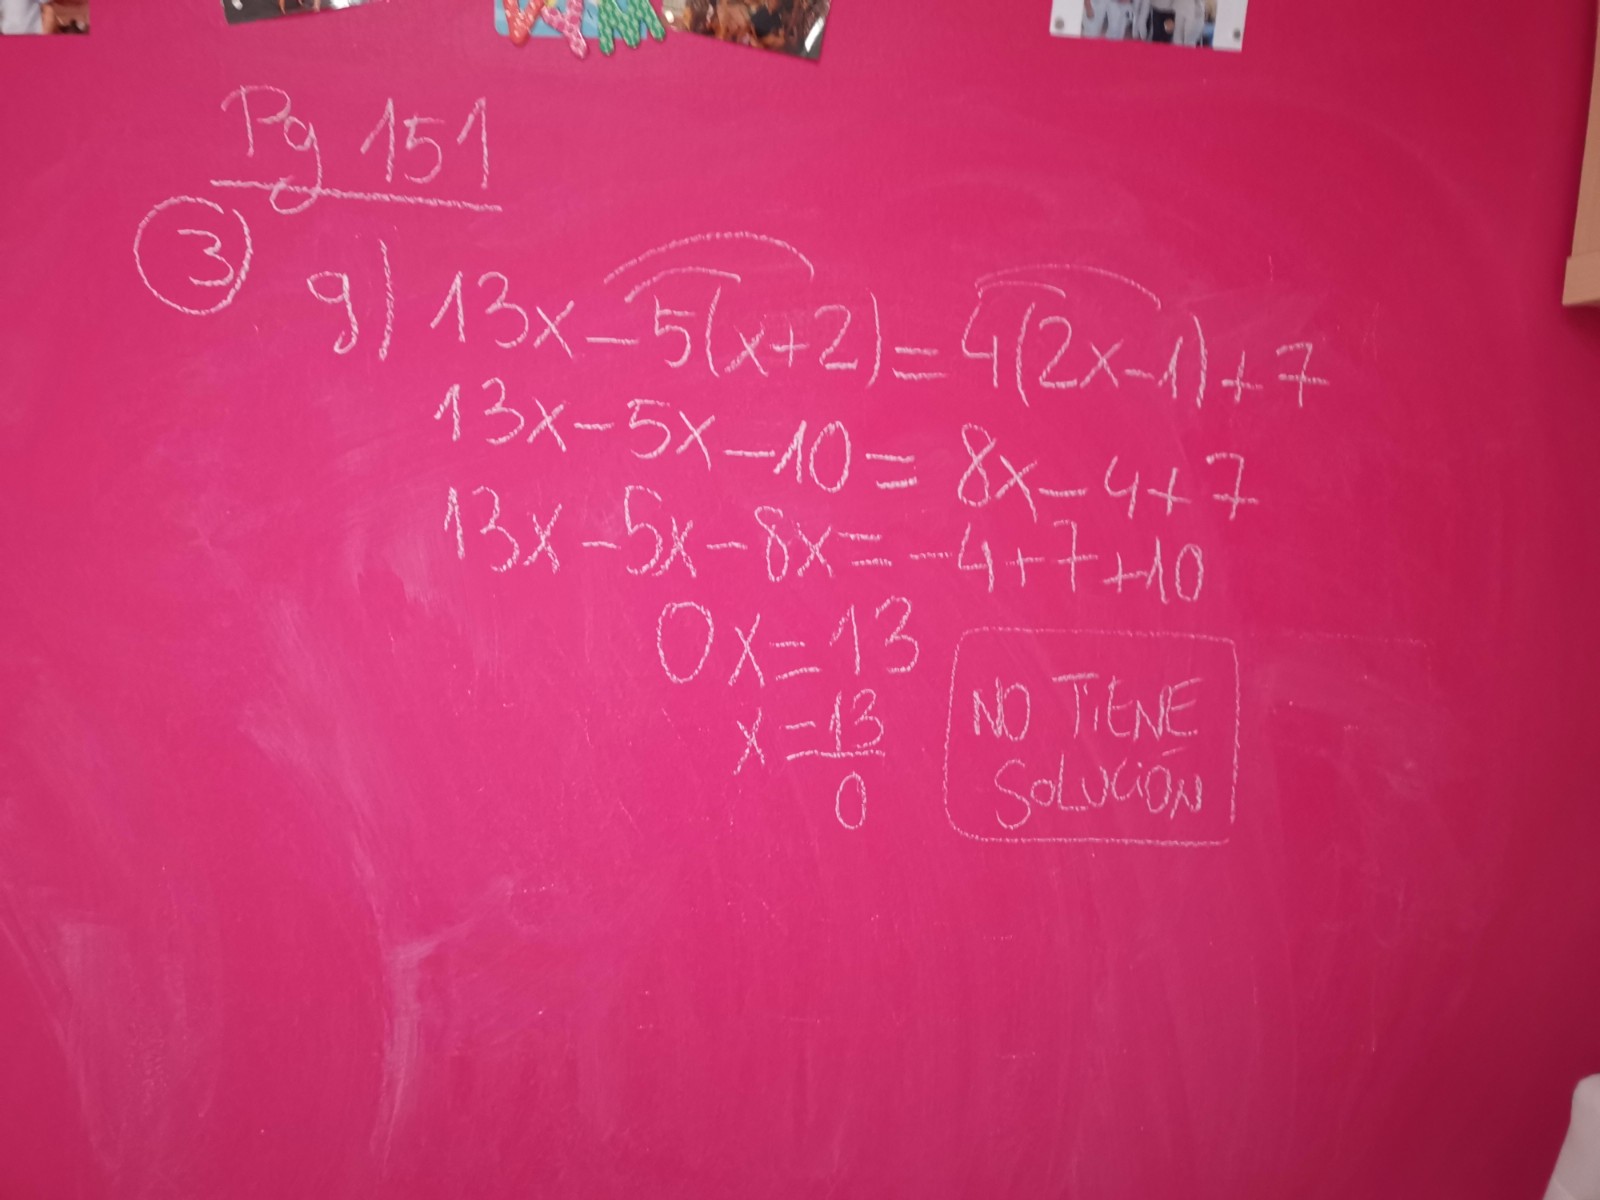 Pg 151
3
g) 13x - 5(x+2) = 4(2x-1)+7
13x - 5x - 10 = 8x - 4 + 7
13x - 5x - 8x = -4 + 7 + 10
0x = 13
x = 13/0
NO TiENE
SOLUCiÓN